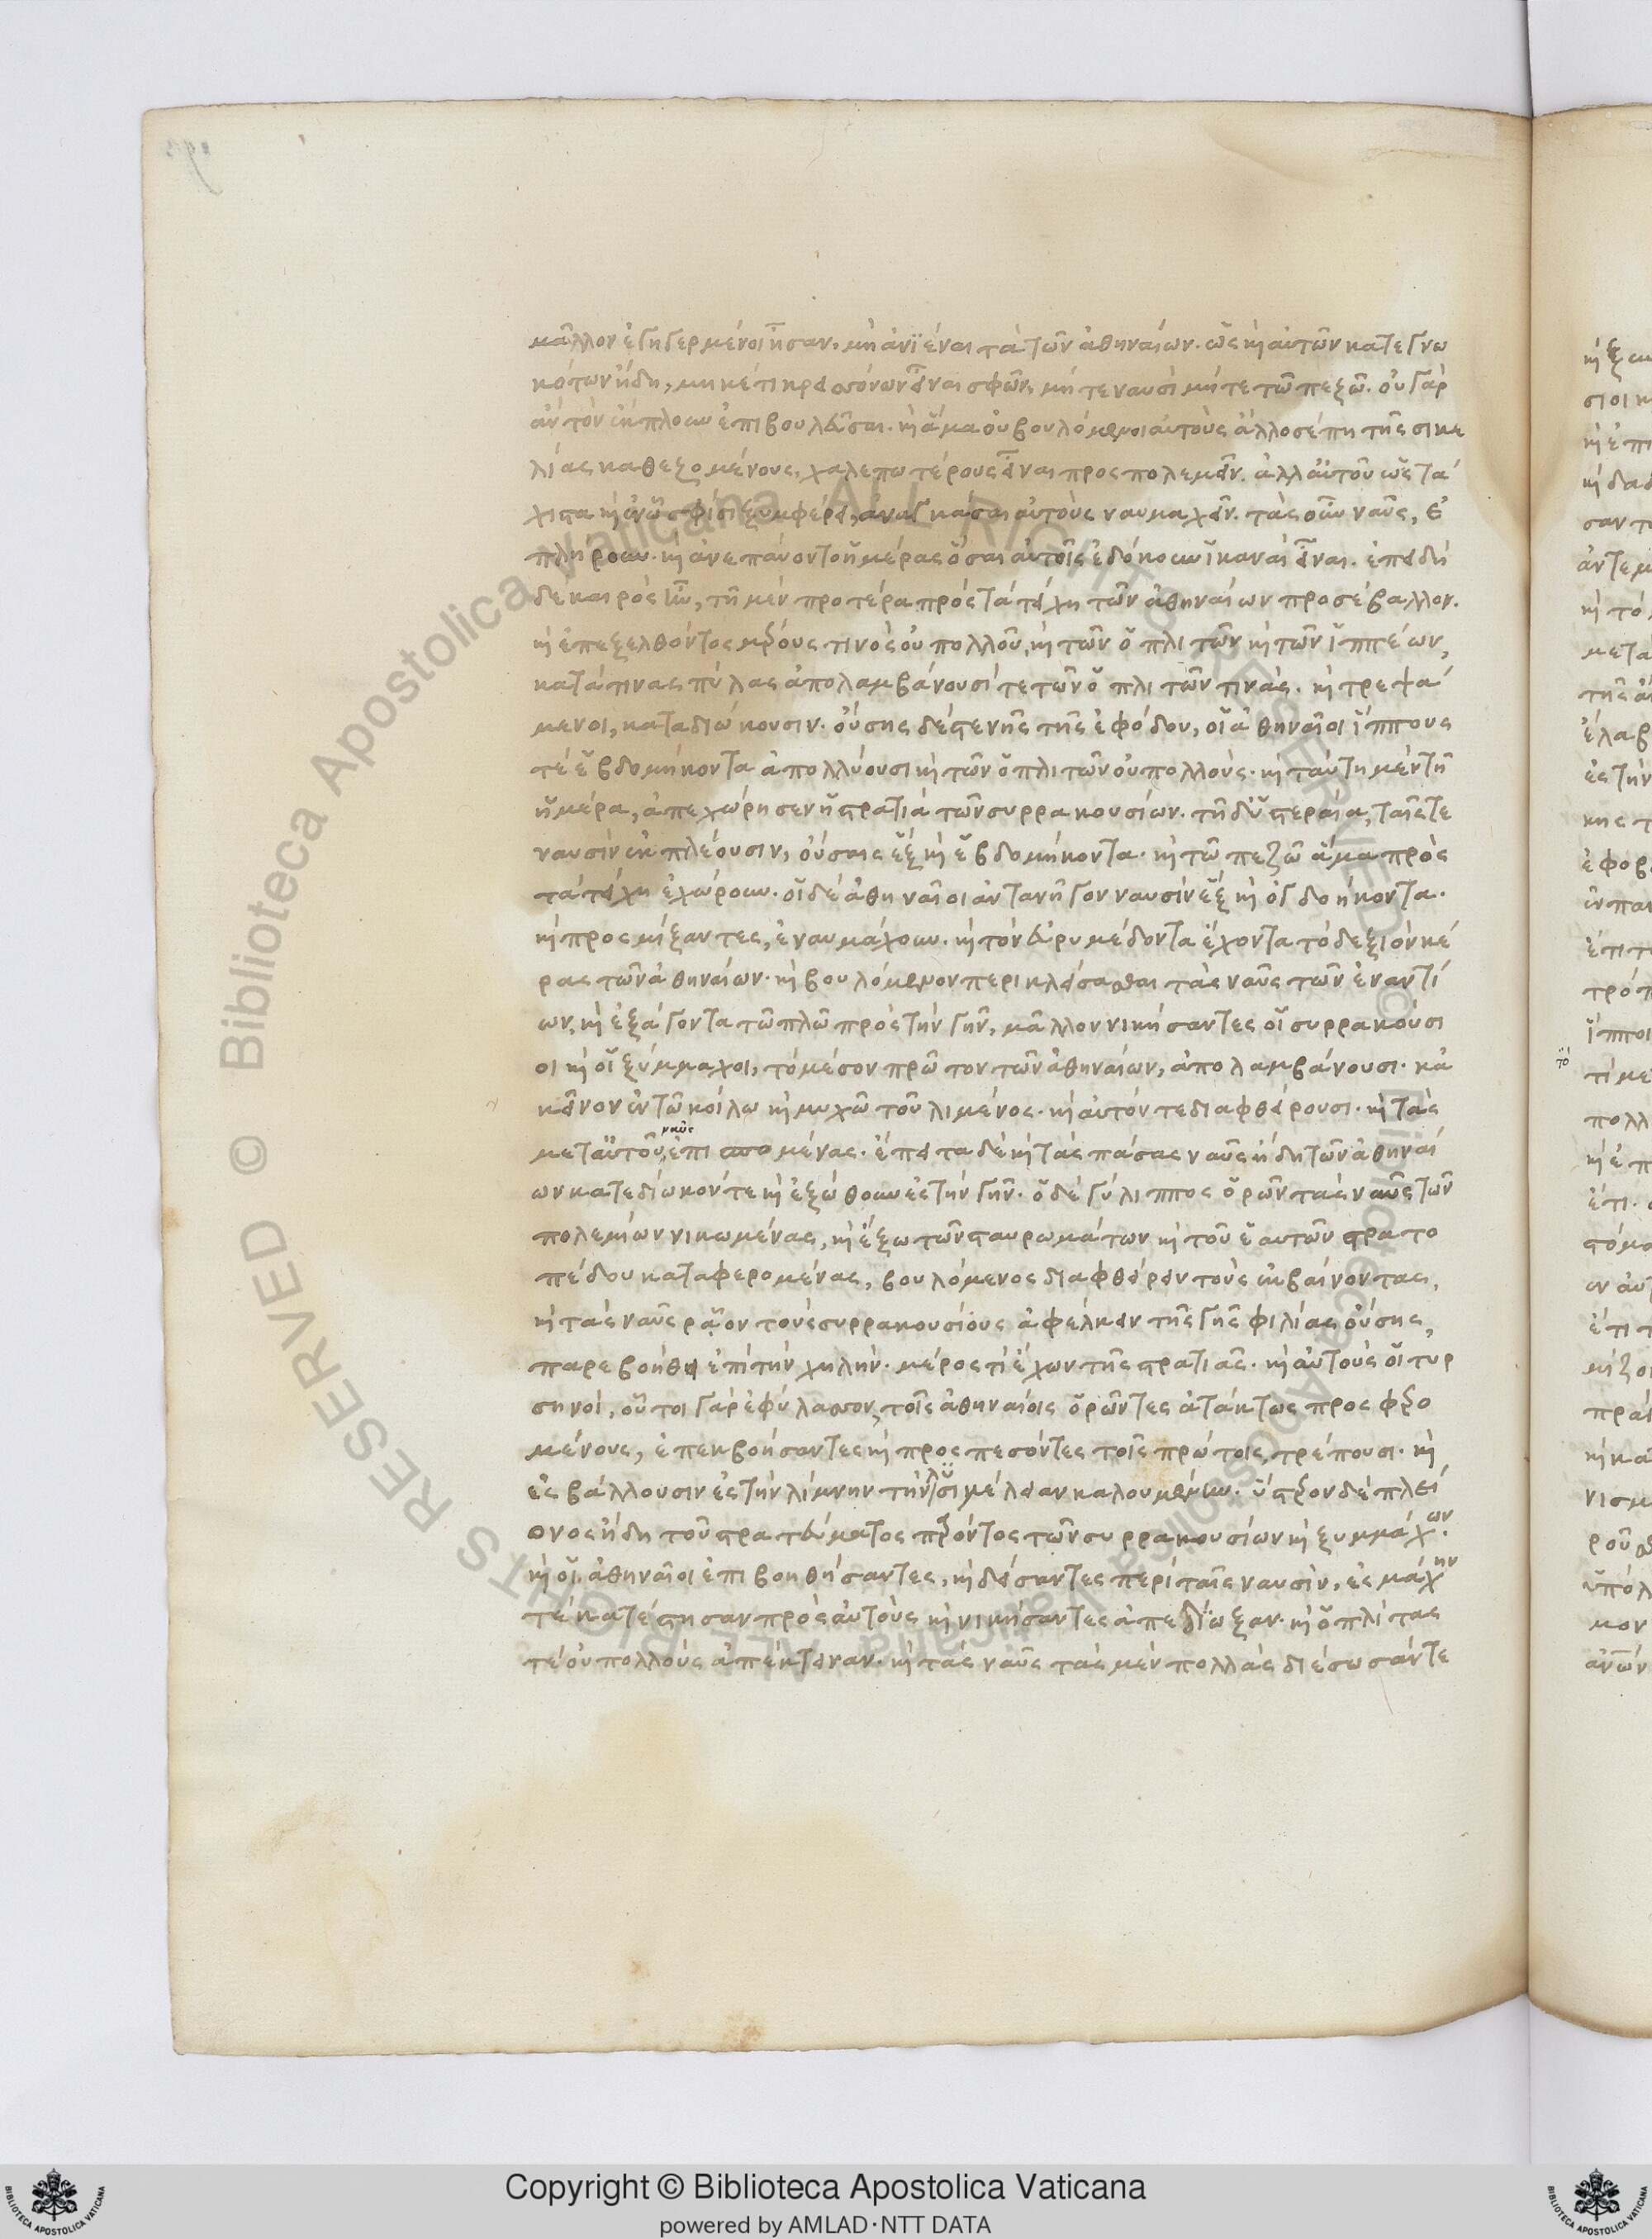 μᾶλλον ἐγηγερμένοι ἦσαν, μὴ ἀνϊέναι τὰ τῶν ἀθηναίων. ὡς καὶ αὐτῶν κατεγνω
κότων ἤδη, μηκέτι κρεισσόνων εἶναι σφῶν, μήτε ναυσὶ μήτε τῶ πεζῶ. οὐ γὰρ
ἂν τὸν ἔκπλουν ἐπιβουλεῦσαι. καὶ ἅμα οὐ βουλόμενοι αὐτοὺς ἄλλοσέ πη τῆς σικε
λίας καθεζομένους, χαλεπωτέρους εἶναι προσπολεμεῖν. ἀλλ αὐτοῦ ὡς τά
χιστα καὶ ἐν ὧ σφίσι ξυμφέρει, ἀναγκάσαι αὐτοὺς ναυμαχεῖν. τὰς οὖν ναῦς, ἐ
πλήρουν. καὶ ἀνεπαύοντο ἡμέρας ὅσαι αὐτοῖς ἐδόκουν ἱκαναὶ εἶναι. ἐπειδὴ
δὲ καιρὸς ἦν, τῆ μὲν προτέρα πρὸς τὰ τείχη τῶν ἀθηναίων προσέβαλλον.
καὶ ἐπεξελθόντος μέρους τινὸς οὐ πολλοῦ, καὶ τῶν ὁπλιτῶν καὶ τῶν ἱππέων,
κατά τινας πύλας ἀπολαμβάνουσί τε τῶν ὁπλιτῶν τινάς. καὶ τρεψά
μενοι, καταδιώκουσιν. οὔσης δὲ στενῆς τῆς ἐφόδου, οἱ ἀθηναῖοι ἵππους
τε ἑβδομήκοντα ἀπολλύουσι καὶ τῶν ὁπλιτῶν οὐ πολλούς. καὶ ταύτη μὲν τῆ
ἡμέρα, ἀπεχώρησεν ἡ στρατιὰ τῶν συρρακουσίων. τῆ δ ὑστεραία, ταῖς τε
ναυσὶν ἐκπλέουσιν, οὔσαις ἓξ καὶ ἑβδομήκοντα. καὶ τῶ πεζῶ ἅμα πρὸς
τὰ τείχη ἐχώρουν. οἱ δὲ ἀθηναῖοι ἀντανῆγον ναυσὶν ἓξ καὶ ὀγδοήκοντα.
καὶ προσμίξαντες, ἐναυμάχουν. καὶ τὸν εὐρυμέδοντα ἔχοντα τὸ δεξιὸν κέ
ρας τῶν ἀθηναίων. καὶ βουλόμενον περικλείσασθαι τὰς ναῦς τῶν ἐναντί
ων, καὶ ἐξάγοντα τῶ πλῶ πρὸς τὴν γῆν, μᾶλλον νικήσαντες οἱ συρρακούσι
οι καὶ οἱ ξύμμαχοι, τὸ μέσον πρῶτον τῶν ἀθηναίων, ἀπολαμβάνουσι. κἀ
κεῖνον ἐν τῶ κοίλω καὶ μυχῶ τοῦ λιμένος. καὶ αὐτόν τε διαφθείρουσι. καὶ τὰς
μετ αὐτοῦ ναῦς ἐπισπομένας. ἔπειτα δὲ καὶ τὰς πάσας ναῦς ἤδη τῶν ἀθηναί
ων κατεδίωκόν τε καὶ ἐξώθουν ἐς τὴν γῆν. ὁ δὲ γύλιππος ὁρῶν τὰς ναῦς τῶν
πολεμίων νικωμένας, καὶ ἔξω τῶν σταυρωμάτων καὶ τοῦ ἑαυτῶν στρατο
πέδου καταφερομένας, βουλόμενος διαφθείρειν τοὺς ἐκβαίνοντας,
καὶ τὰς ναῦς ρᾶον τοὺς συρρακουσίους ἀφέλκειν τῆς γῆς φιλίας οὔσης,
παρεβοήθει ἐπὶ τὴν χηλήν. μέρος τι ἔχων τῆς στρατιᾶς. καὶ αὐτοὺς οἱ τυρ
σηνοί, οὗτοι γὰρ ἐφύλασσον τοῖς ἀθηναίοις ὁρῶντες ἀτάκτως προσφερο
μένους, ἐπεκβοήσαντες καὶ προσπεσόντες τοῖς πρώτοις τρέπουσι. καὶ
ἐσβάλλουσιν ἐς τὴν λίμνην τὴν λυσιμέλειαν καλουμένην. ὕστερον δὲ πλεί
ονος ἤδη τοῦ στρατεύματος παρόντος τῶν συρρακουσίων καὶ ξυμμάχων.
καὶ οἱ ἀθηναῖοι ἐπιβοηθήσαντες, καὶ δείσαντες περὶ ταῖς ναυσὶν, ἐς μάχην
τε κατέστησαν πρὸς αὐτοὺς καὶ νικήσαντες ἀπεδίωξαν. καὶ ὁπλίτας
τε οὐ πολλοὺς ἀπέκτειναν. καὶ τὰς ναῦς τὰς μὲν πολλὰς διέσωσάν τε